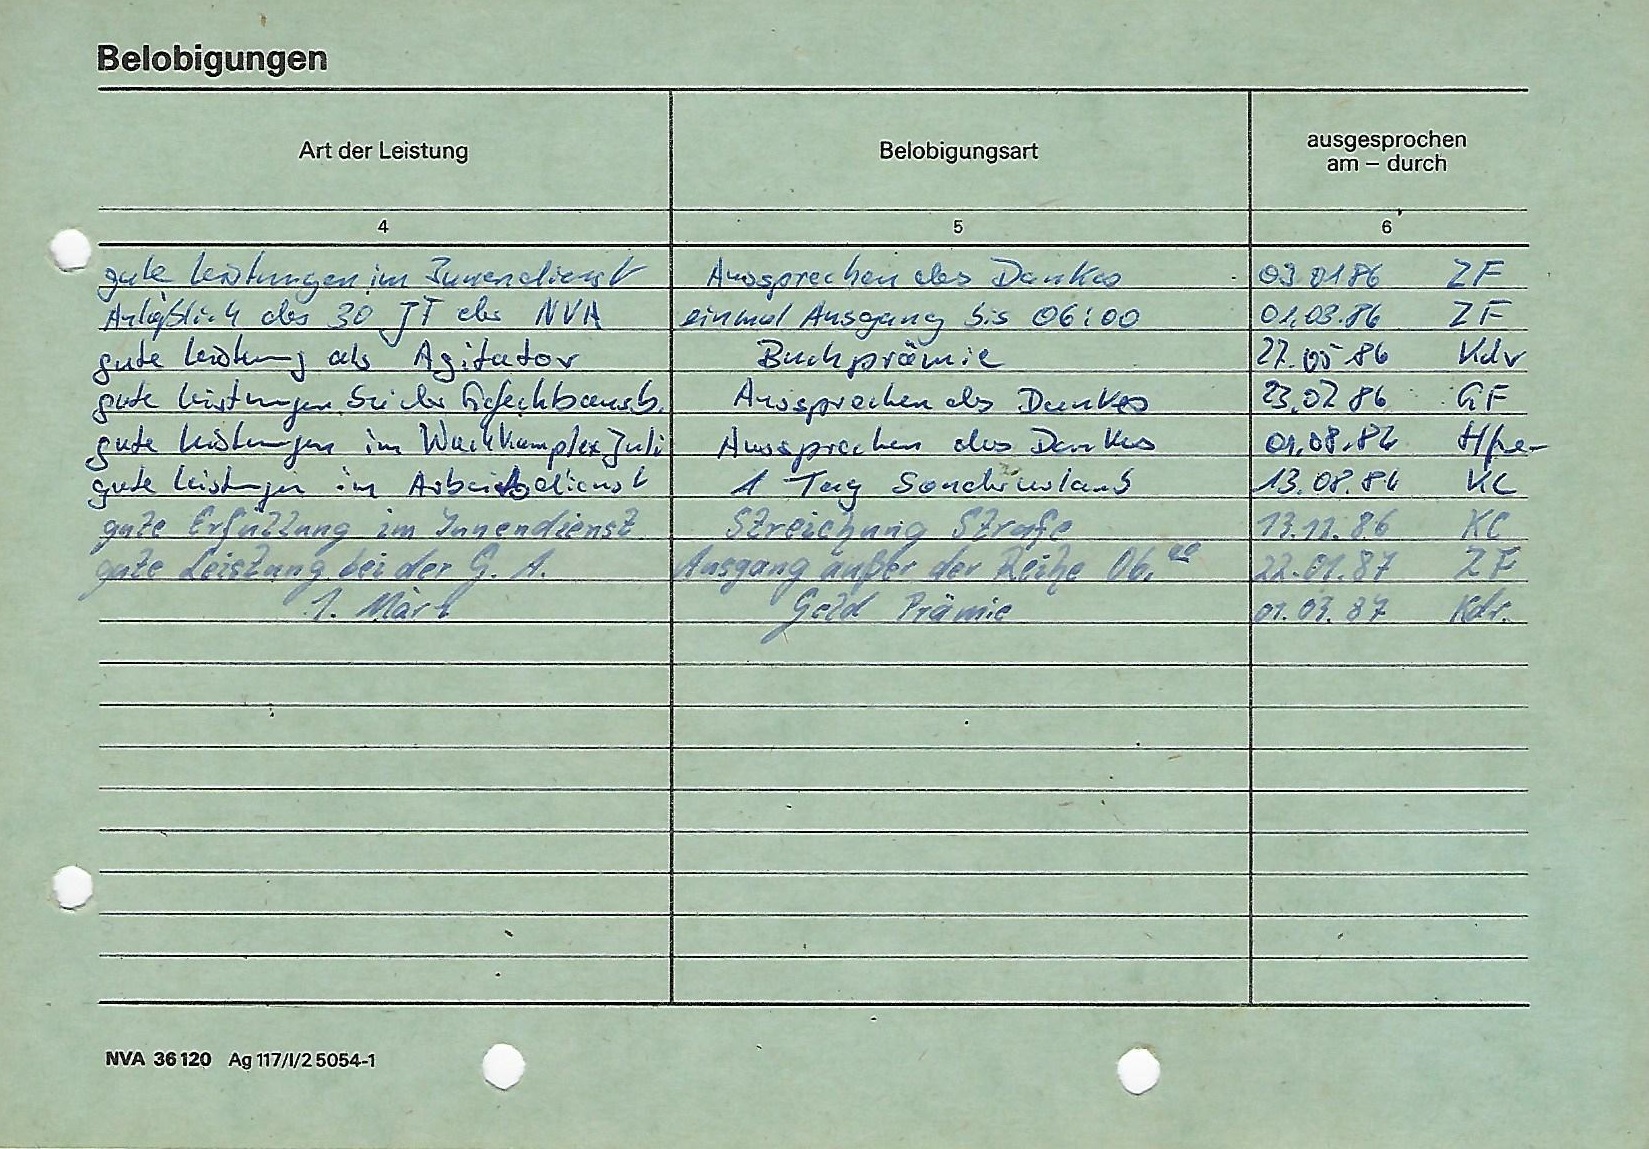 Belobigungen
Art der Leistung Belobigungsart ausgesprochen
am – durch
4 5 6
gute Leistungen im Innendienst Aussprechen des Dankes 03.01 86 ZF
Anläßlich des 30 JT der NVA einmal Ausgang bis 06:00 01.03.86 ZF
gute Leistung als Agitator Buchprämie 27.05 86 Kdr
gute Leistungen bei der Gefechtsausb. Aussprechen des Dankes 23.07 86 GF
gute Leistungen im Wachkomplex Juli Aussprechen des Dankes 01.08.86
gute Leistungen im Arbeitsdienst 1 Tag Sonderurlaub 13.08.86 KC
gute Erfüllung im Innendienst Streichung Strafe 13.12.86 KC
gute Leistung bei der G. A. Ausgang außer der Reihe 06.00 22.01.87 ZF
1. März Geld Prämie 01.03.87 Kdr.
NVA 36 120 Ag 117/I/2 5054-1